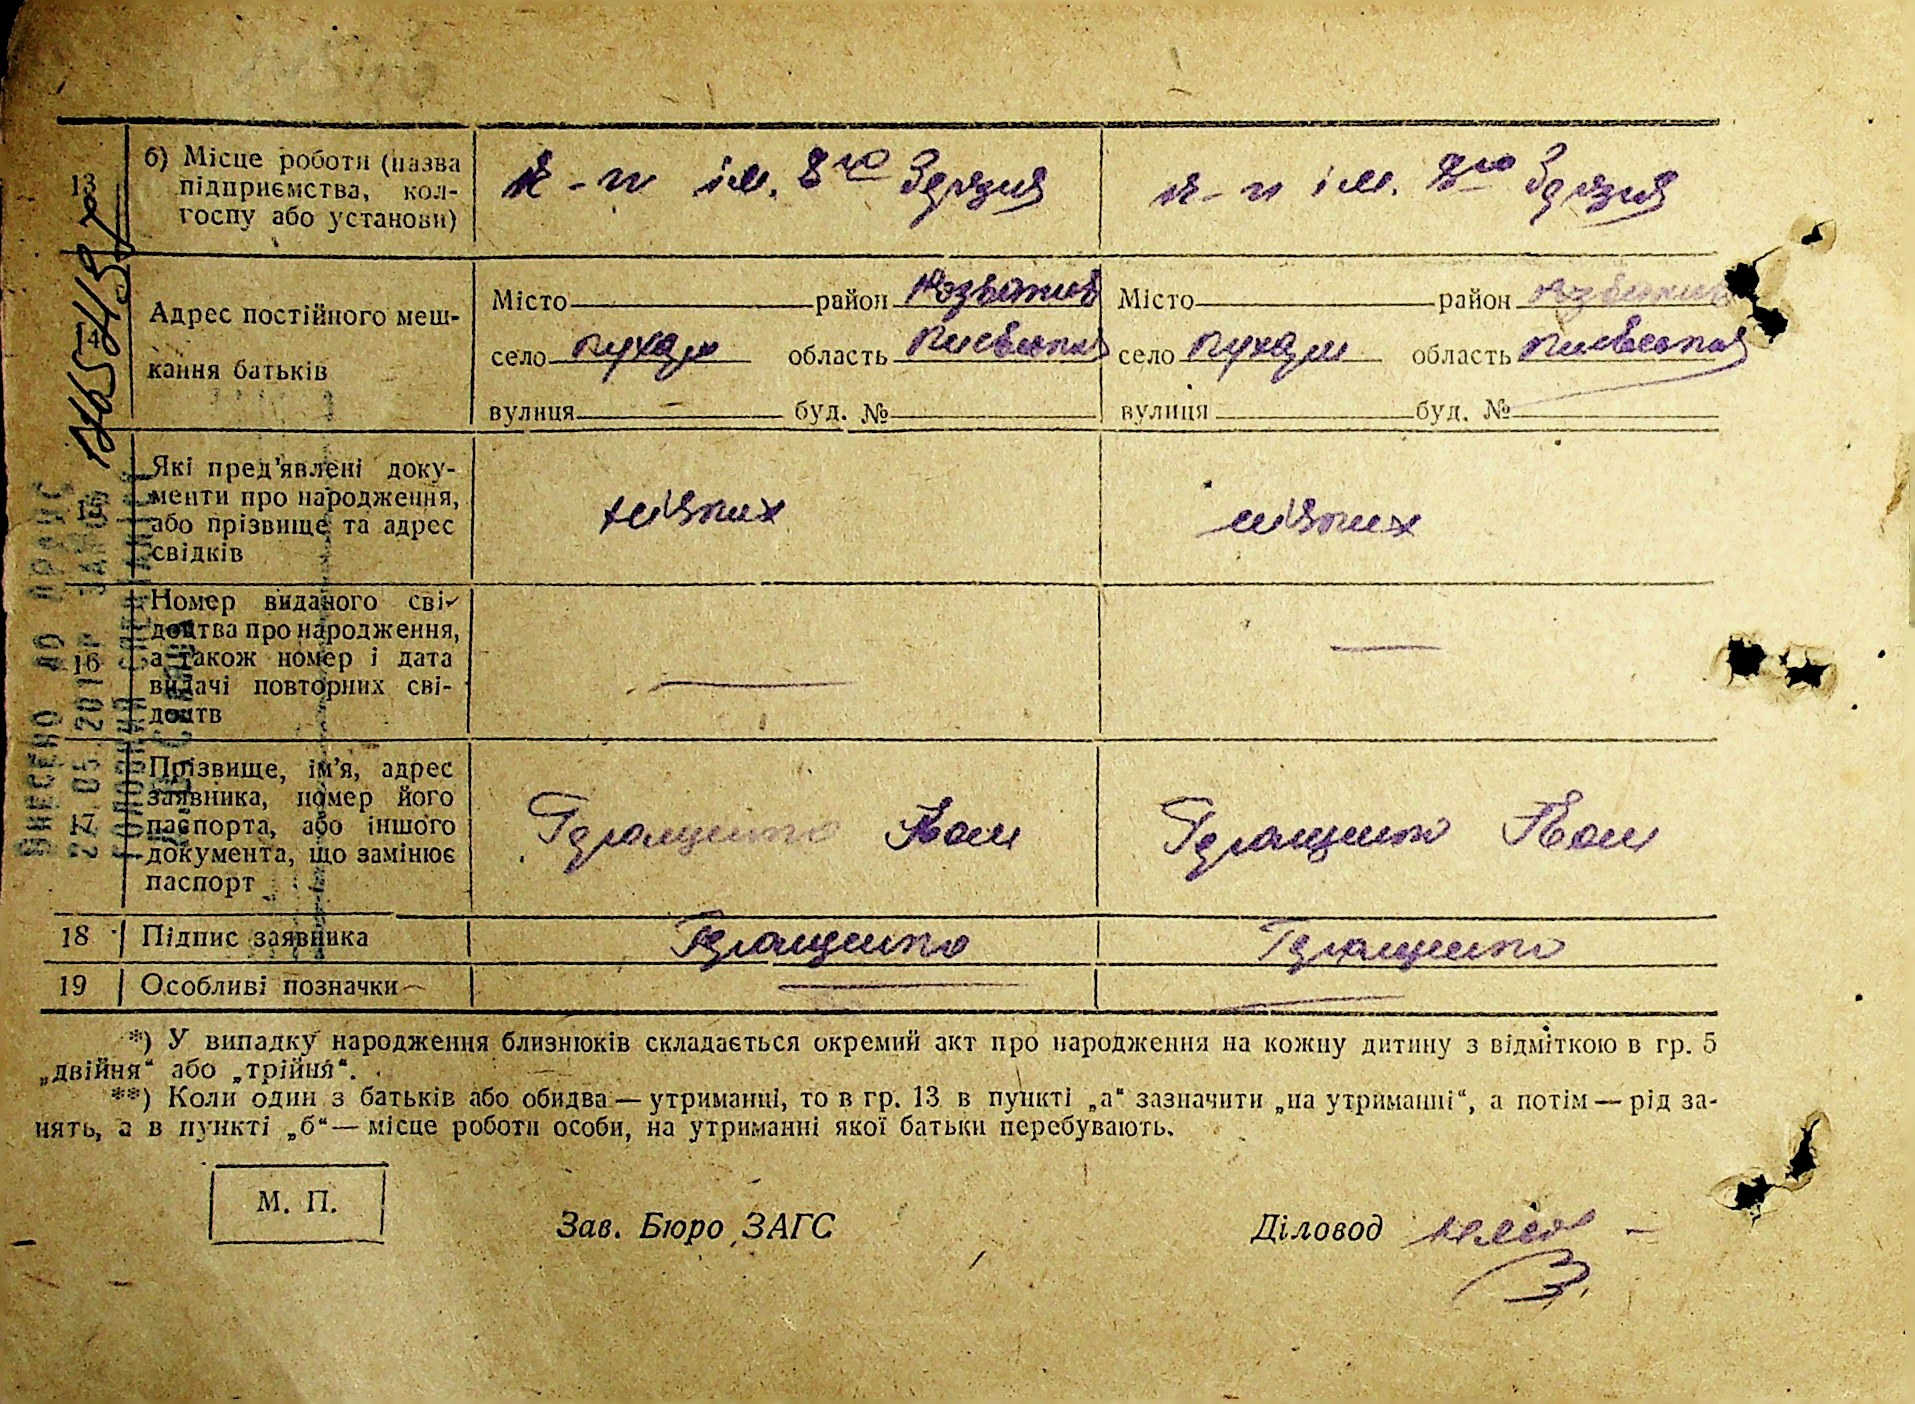 13
б) Місце роботи (назва
підприємства, кол-
госпу або установи)
к-п ім. 8го З'їзду
к-п ім. 8го З'їзду
Адрес постійного меш-
кання батьків
Місто район Розважів
село Пухали область Київська
вулиця буд. №
Місто район Розважів
село Пухали область Київська
вулиця буд. №
Які пред'явлені доку-
менти про народження,
або прізвище та адрес
свідків
ніяких
ніяких
16
Номер виданого сві-
доцтва про народження,
а також номер і дата
видачі повторних сві-
доцтв
17
Прізвище, ім'я, адрес
заявника, номер його
паспорта, або іншого
документа, що замінює
паспорт
Геращенко
Геращенко
18 Підпис заявника
Геращенко
Геращенко
19 Особливі позначки
*) У випадку народження близнюків складається окремий акт про народження на кожну дитину з відміткою в гр. 5
„двійня“ або „трійня“.
**) Коли один з батьків або обидва — утриманці, то в гр. 13 в пункті „а“ зазначити „на утриманні“, а потім — рід за-
нять, а в пункті „б“ — місце роботи особи, на утриманні якої батьки перебувають.
М. П.
Зав. Бюро ЗАГС
Діловод
ВНЕСЕНО ДО ДРАЦС